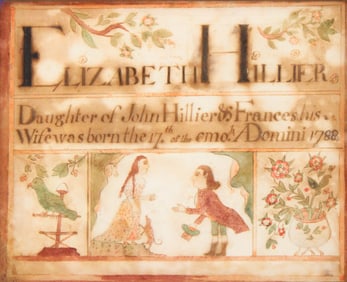 ELIZABETH HILLIER
Daughter of John Hillier & Frances his
Wife was born the 17.th of the 6mo. A/Domini 1788